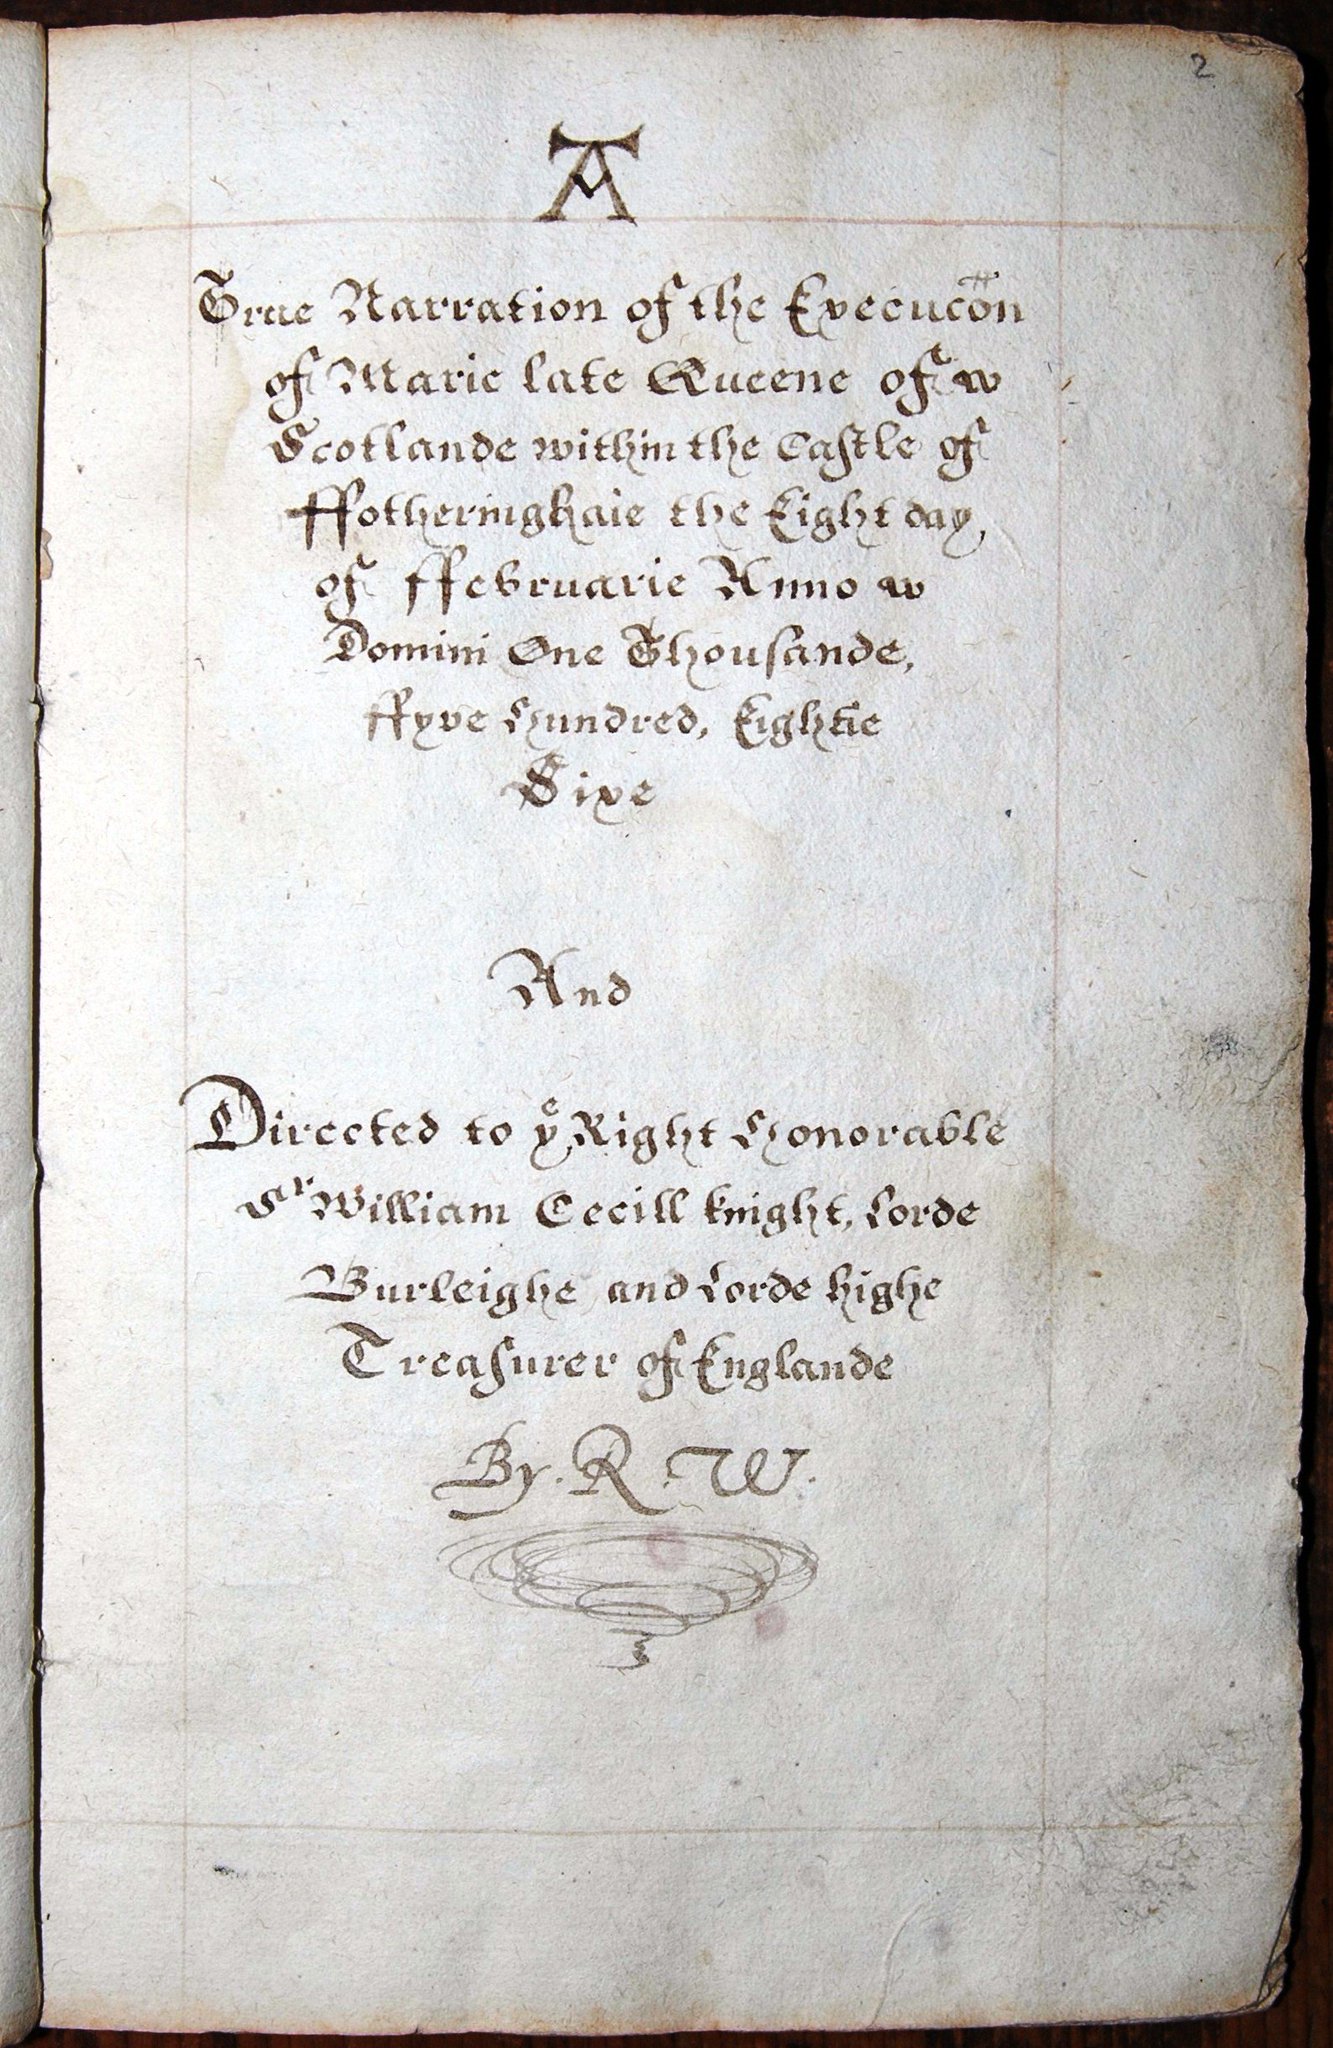 2
A
True Narration of the Execucõn
of Marie late Queene of
Scotlande within the Castle of
ffotheringhaie the Eight day,
of ffebruarie Anno
Domini One Thousande,
ffyve Hundred, Eightie
Sixe
And
Directed to yᵉ Right Honorable
Sʳ William Cecill knight, Lorde
Burleighe and Lorde highe
Treasurer of Englande
By. R. W.